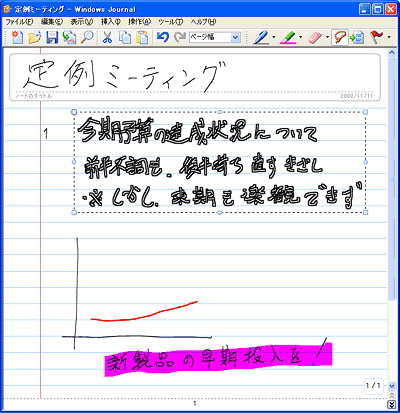 定例ミーティング - Windows Journal
ファイル(F) 編集(E) 表示(V) 挿入(I) 操作(A) ツール(T) ヘルプ(H)
ページ幅
定例ミーティング
ノートのタイトル 2002/11/11
1 今期予算の達成状況について
前半不調も、後半持ち直すきざし
※しかし、来期も楽観できず
新製品の早期投入を!
1/1
1